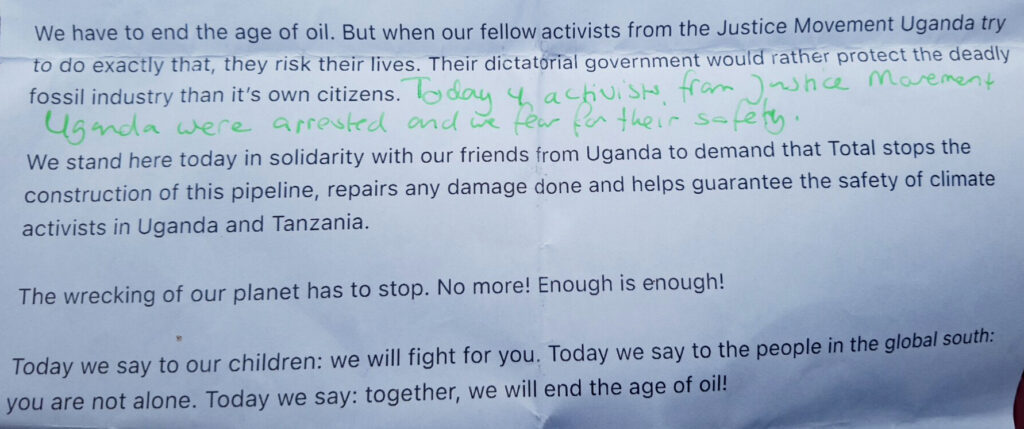 We have to end the age of oil. But when our fellow activists from the Justice Movement Uganda try
to do exactly that, they risk their lives. Their dictatorial government would rather protect the deadly
fossil industry than it's own citizens. Today 4 activists from Justice Movement
Uganda were arrested and we fear for their safety.
We stand here today in solidarity with our friends from Uganda to demand that Total stops the
construction of this pipeline, repairs any damage done and helps guarantee the safety of climate
activists in Uganda and Tanzania.
The wrecking of our planet has to stop. No more! Enough is enough!
Today we say to our children: we will fight for you. Today we say to the people in the global south:
you are not alone. Today we say: together, we will end the age of oil!